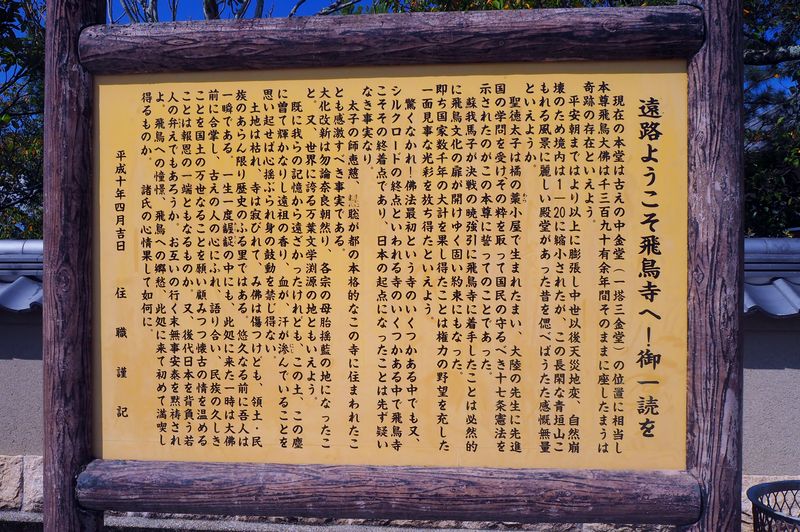 遠路ようこそ飛鳥寺へ!御一読を
現在の本堂は古えの中金堂(一塔三金堂)の位置に相当し
本尊飛鳥大佛は千三百九十有余年間そのままに座したまうは
奇跡の存在といえよう。
平安朝まではより以上に膨張し中世以後天災地変、自然崩
壊のため境内は1―20に縮小されたが、この長閑な青垣山こ
もれる風景に麗しい殿堂があった昔を偲べばうたた感慨無量
といえようか。
聖徳太子は橘の藁小屋で生まれたまい、大陸の先生に先進
国の学問を受けその粋を取って国民の守るべき十七条憲法を
示されたのがこの本尊に誓ってのことであった。
蘇我馬子が決戦の暁強引に飛鳥寺に着手したことは必然的
に飛鳥文化の扉が開けゆく固い約束にもなった。
即ち国家数千年の大計を果し得たことは権力の野望を充した
一面見事な光彩を放ち得たといえよう。
驚くなかれ!佛法最初という寺のいくつかある中でも又、
シルクロードの終点といわれる寺のいくつかある中で飛鳥寺
こそその終着点であり、日本の起点になったことは先ず疑い
なき事実なり。
太子の師恵慈、聡が都の本格的なこの寺に住まわれたこ
とも感激すべき事実である。
大化改新は勿論奈良朝然り、各宗の母胎揺藍の地になったこ
と。又、世界に誇る万葉文学渕源の地ともいえよう。
既に我らの記憶から遠ざかったけれども、この土、この塵
に曽て輝かなりし遠祖の香り、血が、汗が滲んでいることを
思い起せば心揺ぶられ身の鼓動を禁じ得ない。
土地は枯れ、寺は寂びれて、み佛は傷つけども、領土・民
族のあらん限り歴史のふる里ではある。悠久なる前に吾人は
一瞬である。一生一度齷齪の中にも、此処に来た一時は大佛
前に合掌し、古えの人の心にふれ、語り合い、民族の久しき
ことを国土の万世なることを願い顧みつつ懐古の情を温める
ことは報恩の一端ともなるものか。又、後代日本を背負う若
人の弁えでもあろうか。お互いの行く末無事安泰を黙祷され
よ。飛鳥への憧憬、飛鳥への郷愁、此処に来て初めて満喫し
得るものか。諸氏の心情果して如何に。
平成十年四月吉日 住職謹記